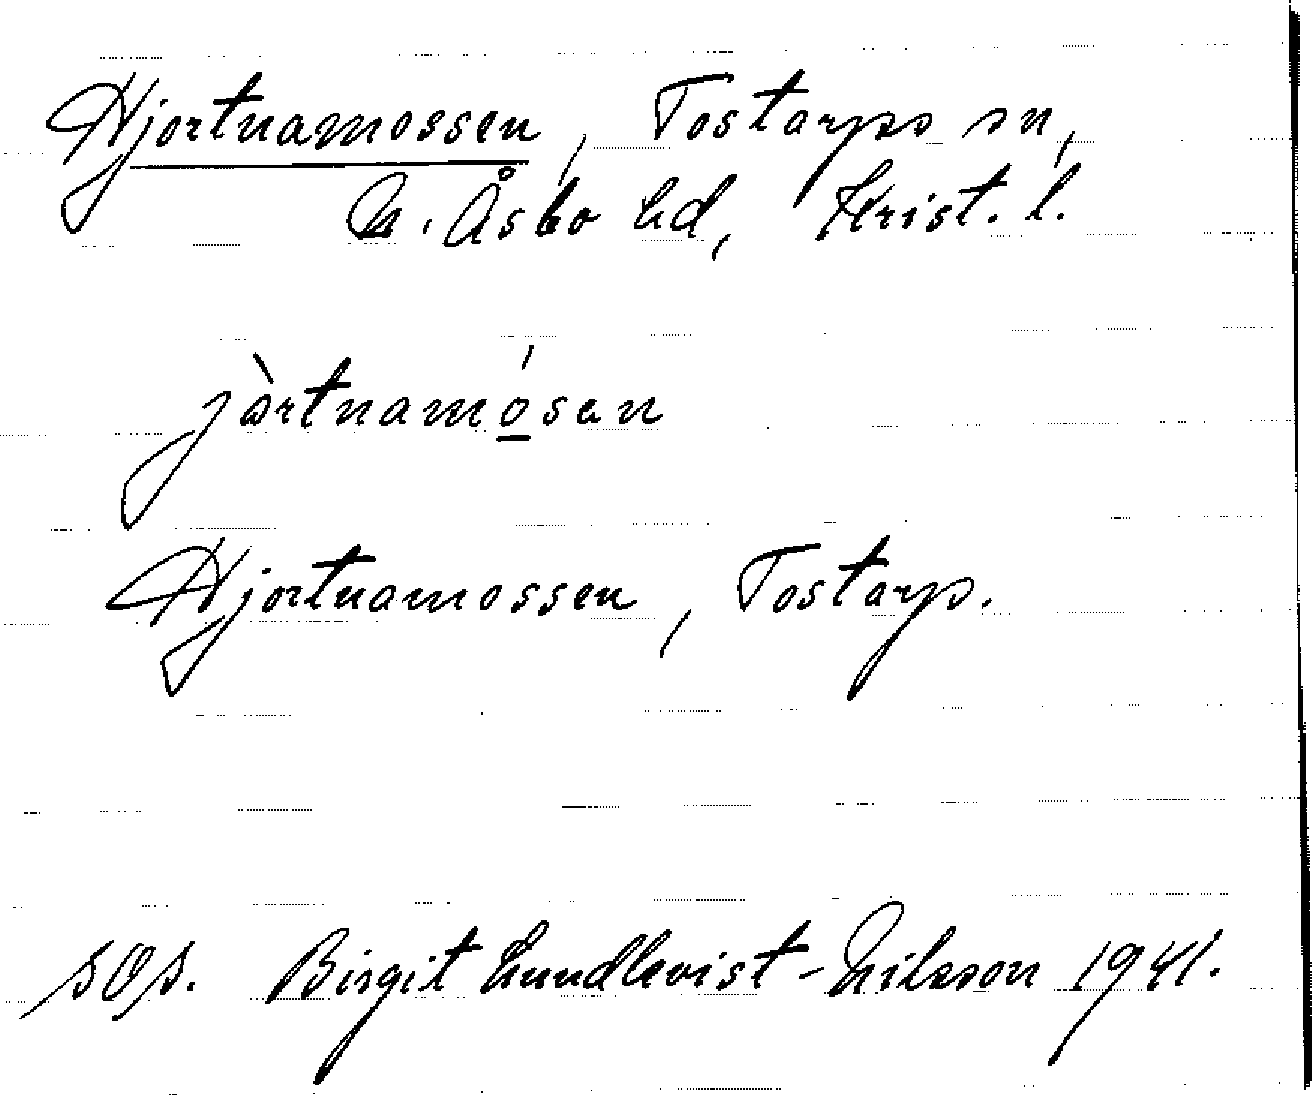 Hjortnamossen, Tostarps sn,
N. Åsbo hd, Krist. l.
jòrtnamósen
Hjortnamossen, Tostarp.
sOs. Birgit Lundkvist-Nilsson 1941.